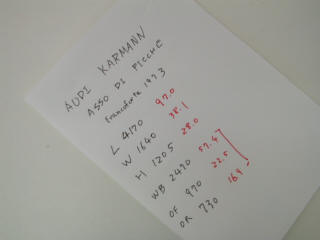 AUDI KARMANN
ASSO DI PICCHE
Francoforte 1973
L 4170 97.0
W 1640 38.1
H 1205 28.0
WB 2470 57.4
OF 970 22.5
OR 730 16.9